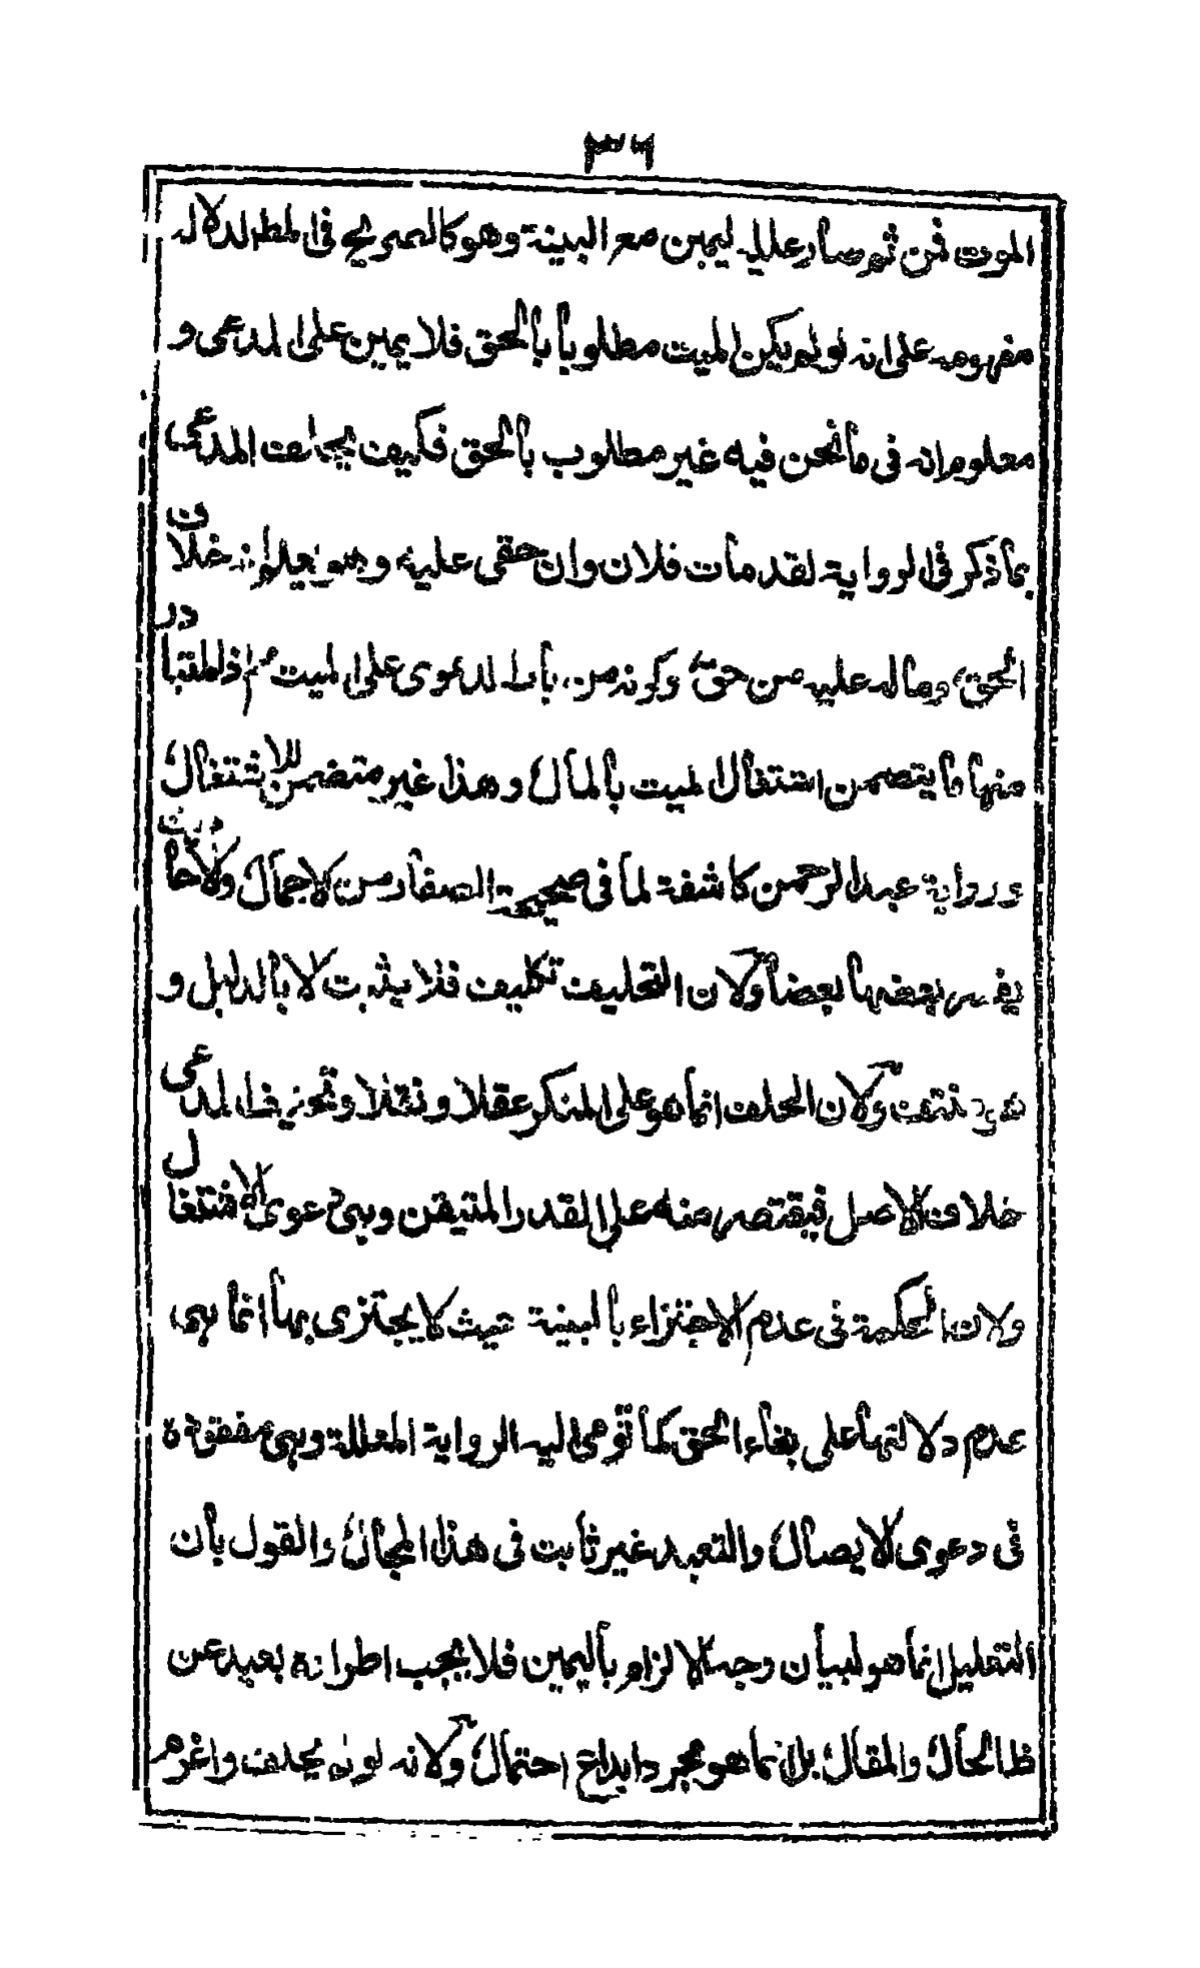 ٣٦
الموت فمن ثم صار عليه اليمين مع البينة وهو كالصريح في المط لدلالة
مفهومه على انه لو لم يكن الميت مطلوباً بالحق فلا يمين على المدعى و
معلوم انه في ما نحن فيه غير مطلوب بالحق فكيف يحلف المدعى
بما ذكر في الرواية لقد مات فلان وان حقى عليه وهو يعلم انه خلاف
الحق وماله عليه من حق وكونه من باب الدعوى على الميت مم اذ المتبادر
منها ما يتضمن اشتغال الميت بالمال وهذا غير متضمن للاشتغال
ورواية عبد الرحمن كاشفة لما في صحيحة الصفار من الاجمال والاحاديث
يفسر بعضها بعضاً ولان التحليف تكليف فلا يثبت الا بالدليل و
هو منتف ولان الحلف انما هو على المنكر عقلا ونقلا وتجويز المدعى
خلاف الاصل فيقتصر منه على القدر المتيقن وهى دعوى الاشتغال
ولان الحكمة في عدم الاجتزاء بالبينة حيث لا يجتزى بها انما هى
عدم دلالتها على بقاء الحق كما تؤمى اليه الرواية المعللة وهى مفقودة
في دعوى الايصال والتعبد غير ثابت في هذا المجال والقول بان
التعليل انما هو لبيان وجه الالزام باليمين فلا يجب اطرانه بعيد عن
ظ الحال والمقال بل انما هو مجرد ابداع احتمال ولانه لو لم يحلف واغرم